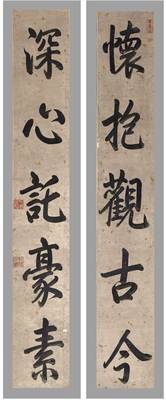 懷抱觀古今
深心託豪素